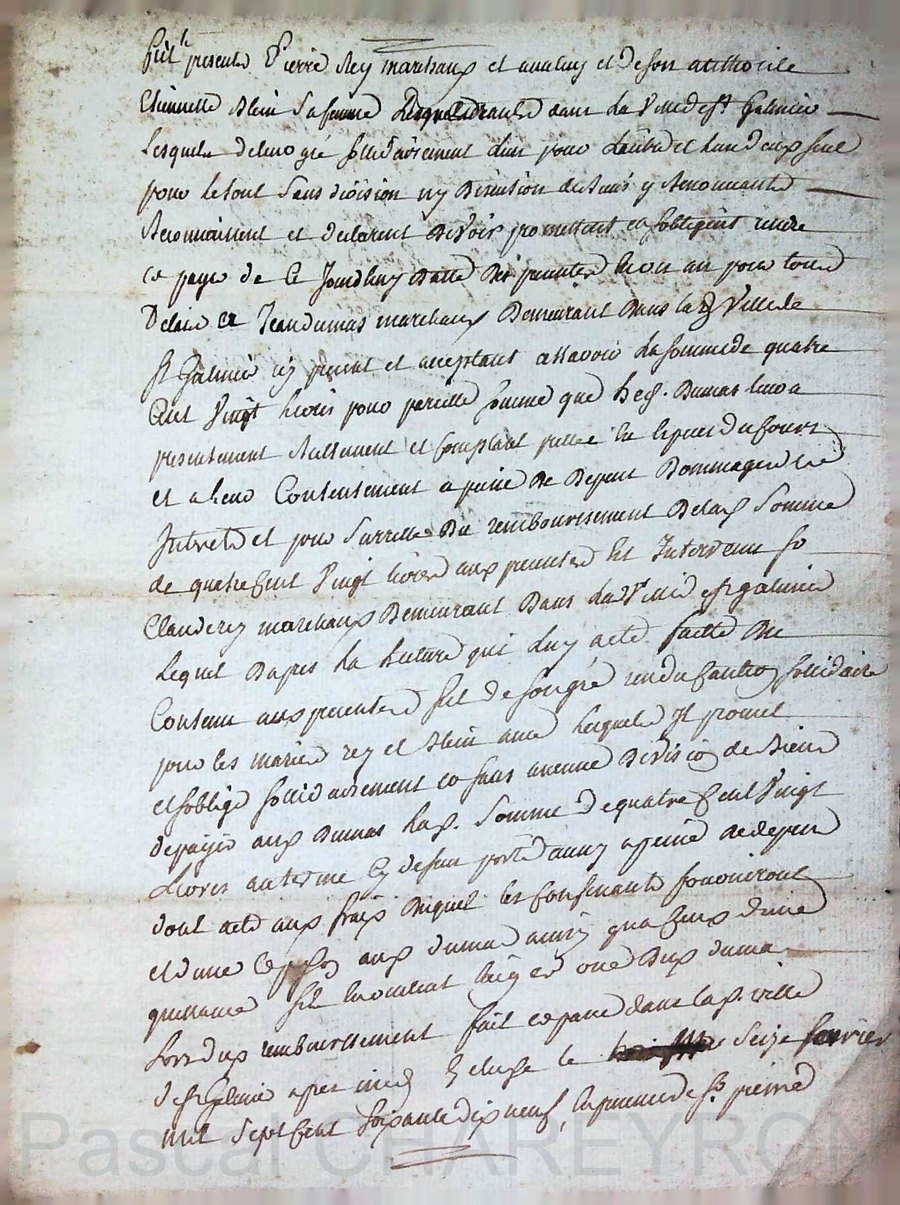 presents Pierre Rey marchand et de son authorité
Etiennette Blein sa femme dans la Ville de St Galmier
Lesquels de leur gré sollidairement l'un pour l'autre et l'un d'eux seul
pour le tout sans division ny de biens y Renonceants
Reconnoissent et declarent devoir promettent et s'obligent rendre
et payer de ce Jourdhuy datte des presentes trois an pour tous
Delais a Jean dumas marchand Demeurant Dans lad Ville de
St Galmier icy present et acceptant assavoir la somme de quatre
Cent Vingt livres pour pareille somme que led. Dumas leur a
presentement Reellement et Comptant
et a leur Contentement a peine de Depens Dommages
Interets et pour du remboursement de lad Somme
de quatre Cent Vingt livres aux presentes Est Intervenu
Claude rey marchand Demeurant Dans lad Ville de St galmier
Lequel Dapres la lecture qui luy a eté faitte Du
Contenu aux presentes s'est de son gré rendu Caution sollidaire
pour les mariés rey et Blein avec lesquels Il promet
et s'oblige sollidairement et sans aucune Division de Biens
de payer aud Dumas lad. Somme de quatre Cent Vingt
Livres au terme cy dessus porté aussy a peine de depens
dont acte aux fraix duquel les
et d'une aud dumas ainsy qu'a Ceux d'une
quittance
Lors dud remboursement fait et passé dans lad. ville
de St Galmier apres midy le seize fevrier
mil sept Cent soixante dix neuf, en presence de Sr. pierre
Pascal CHAREYRON